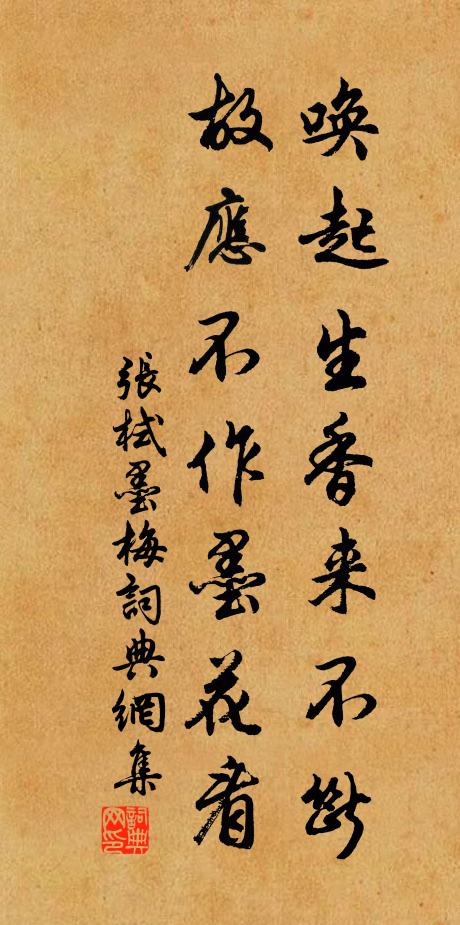 唤起生香来不断
故應不作墨花看
張栻墨梅詞典網集
詞典网印